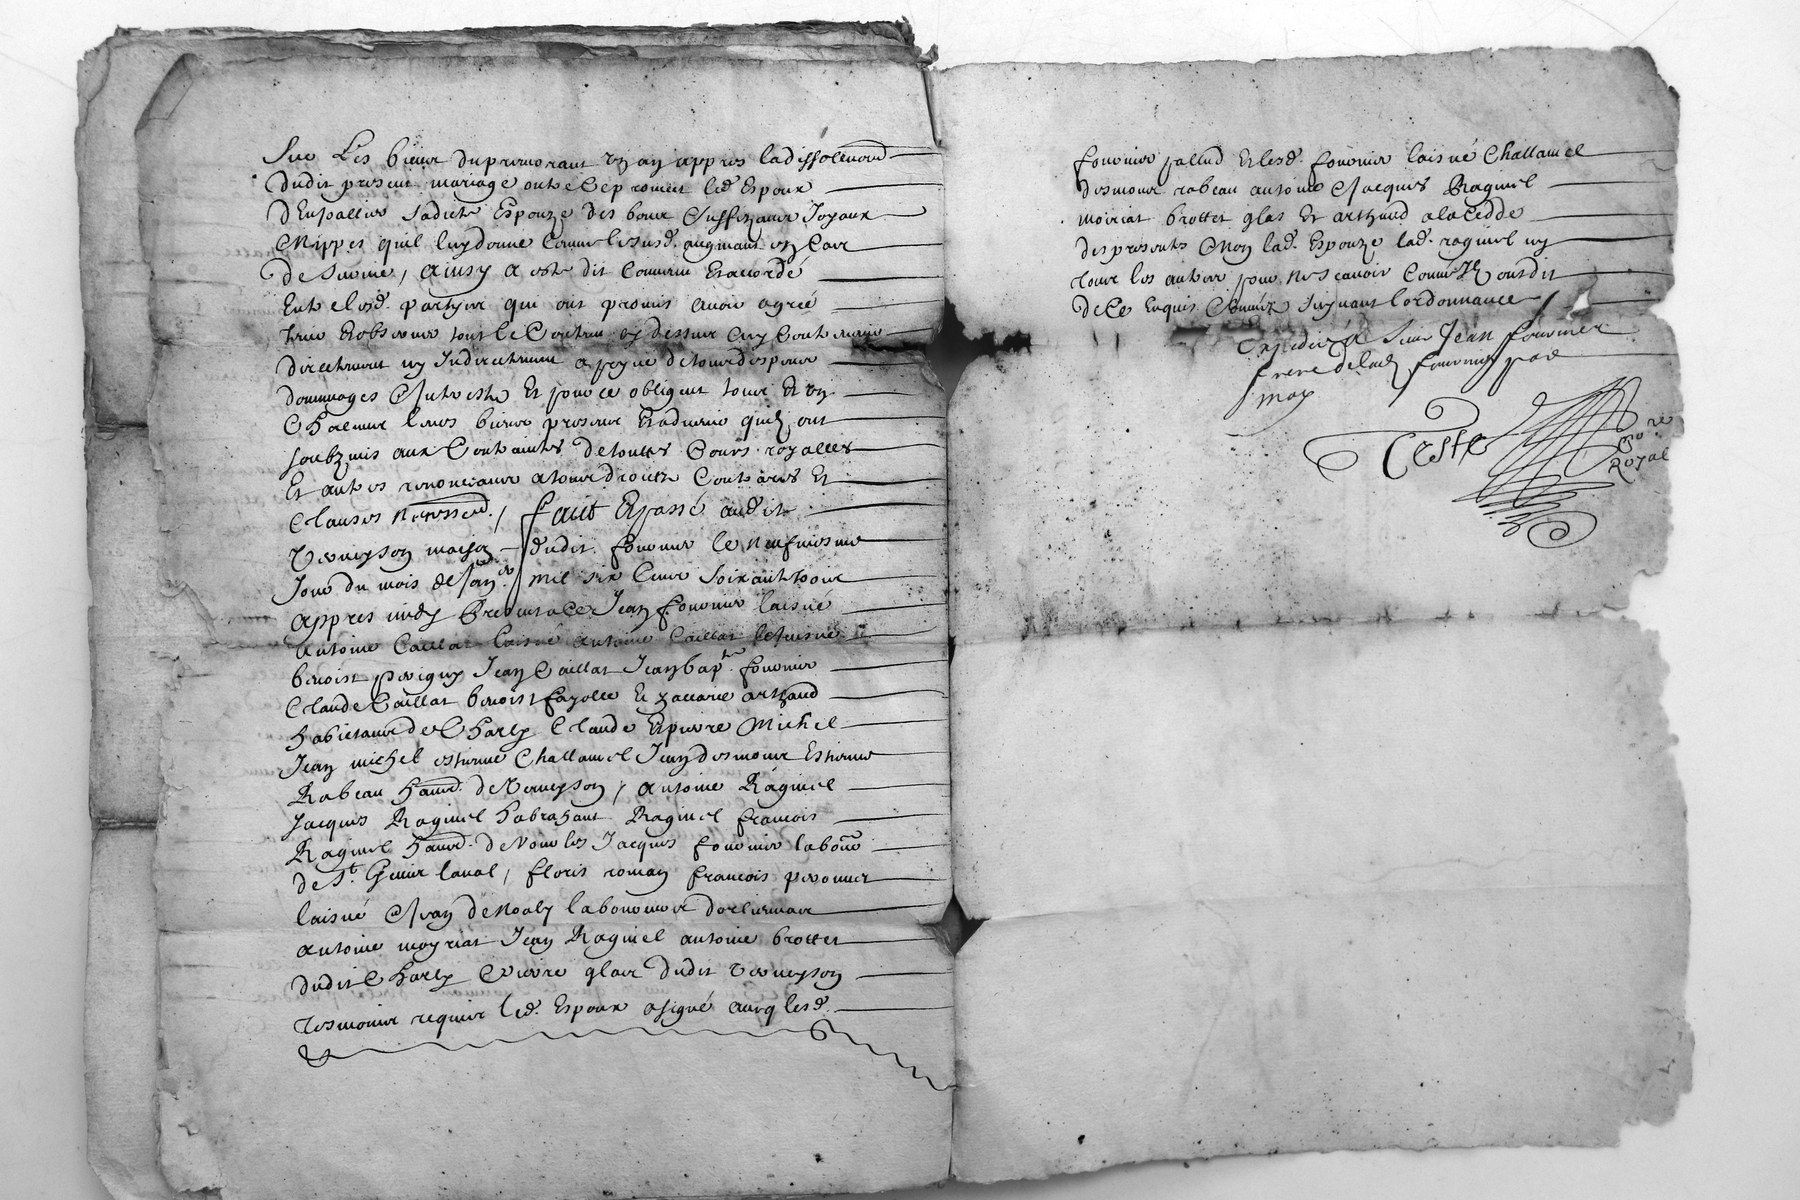 Sur Les biens du premourant Un an appres la dissolution
dudit present mariage oultre Ce promet led. Espoux
D'Enjoallier Sadicte Espouze des bons & suffizans Joyaux
& Nippes quil luy donne Comme lesusd. augmant en Cas
de Survie, Ainsy a este dit Convenu Et accordé
Entre lesd. partyes qui ont promis avoir agreé
tenir Et observer tout le Contenu cy dessus & ny Contrevenir
directement ny Indirectement a peyne de tous despens
dommages & Interestz Et pour ce obligent tous Et Un
Chacun leurs biens presens Et advenir quilz ont
soubzmis aux Contraintes de touttes Cours royalles
Et autres renonceans a tous droitz Contraires Et
Clauses necessres. / faict & passé audit
Verneyson maison dudit fournier le Neufviesme
Jour du mois de Janer. mil six Cens soixante
appres midy Presents a Ce Jean fournier laisné
Antoine Caillat laisné antoine Caillat le Jeusne
benoist perigny Jean Caillat Jean bapte. fournier
Claude Caillat benoist fayolle Et Zacarie arthaud
habictans de Charly Claude Et pierre Michel
Jean michel estienne Challamel Jean desmour Estienne
Rabeau habitd. de Verneyson, Antoine Raginel
Jacques Raginel habraham Raginel francois
Raginel habitd. de Vourles Jacques fournier labour
de St. Genis laval, floris roman francois peronnet
laisné & Jean de Noaly laboureurs dorliennas
antoine moyriat Jean Raginel antoine brottet
dudit Charly & Pierre glas dudit Verneyson
tesmoins requis led. Espoux a signé avecq lesd.
fournier pallud Et lesd. fournier laisné Challamel
desmour rabeau antoine & Jacques Raginel
moiriat brottet glas Et arthaud a la Cedde
des presents & Non lad. Espouze lad. raginel ny
tous les autres pour ne scavoir Comme Ilz ont dit
de Ce Enquis & Sommez suyvant lordonnance
Expedié a Sieur Jean fournier
frere de lad. fournier par
moy
Teste
Nore
Royal